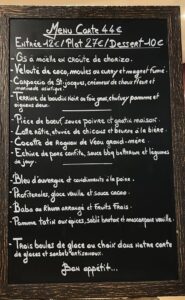 Menu Carte 44€
Entrée-12€/Plat 27€/Dessert-10€
- Os à moelle en croûte de chorizo.
- Velouté de coco, moules au curry et magret fumé
- Carpaccio de St-jacques, crémeux de chou fleur et
marinade asiatique.
- Terrine de boudin noir au foie gras, chutney pomme et
oignons doux.
- Pièce de boeuf, sauce poivre et gratin maison.
- Lotte rôtie, étuvée de chicons et beurre à la bière
- Cocotte de Rognon de Veau grand-mère.
- Echine de porc confite, sauce bbq betterave et légumes
de jour.
- Bleu d'auvergne et condiments à la poire.
- Profiteroles, glace vanille et sauce cacao.
- Baba au Rhum arrangé et Fruits Frais.
- Pomme tatin aux épices, sablé breton et mascarpone vanille.
- Trois boules de glace au choix dans notre carte
de glaces et sorbets artisanaux.
Bon appétit...